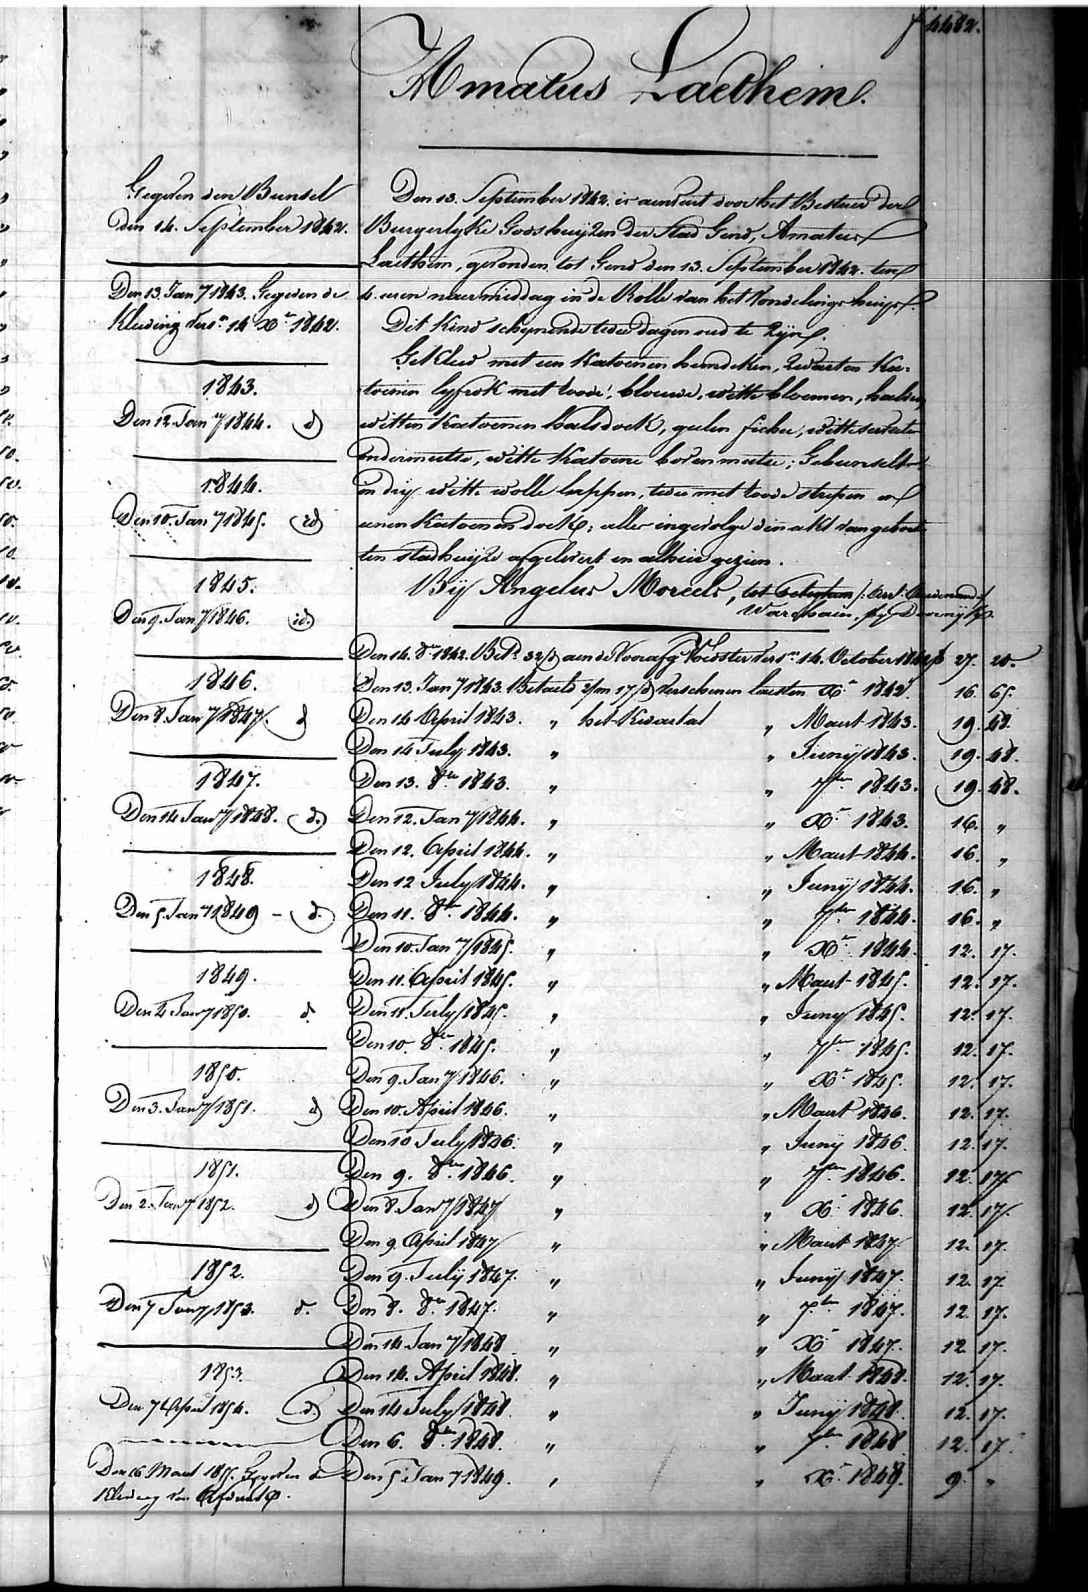 f 4482.
Amatus Laethem.
Gegeven den Bunsel
den 14. September 1842.
Den 13. Jany 1843. Gegeven de
Kleding vers.n 14 Xr 1842.
1843.
Den 12. Jany 1844. d)
1844.
Den 10. Jany 1845. id)
1845.
Den 9. Jany 1846. id.
1846.
Den 8. Jany 1847. d
1847.
Den 14 Jany 1848. d.)
1848.
Den 5. Jany 1849 - d.
1849.
Den 4 Jany 1850. d.
1850.
Den 3. Jany 1851. d)
1851.
Den 2. Jany 1852. d)
1852.
Den 7 Jany 1853. d.
1853.
Den 7 April 1854. d)
Den 26 Maert 1857. Gegeven de
Kleding van
Den 13. September 1842. is aenveert door het Bestier der
Burgerlyke Godshuijzen der Stad Gend, Amatus
Laethem, gevonden tot Gend den 13. September 1842. ten
4. uren naer middag in de Rolle van het Vondelings huijs.
Dit kind schynende twee dagen oud te zijn.
Gekleed met een Katoenen hemdeken, zwarten Ka-
toenen lyfrok met roode, blauwe, witte bloemen,
witten Katoenen halsdoek, geelen fichu, witte servette
ondermutse, witte Katoene bovenmutse; Gebunselt
in dry witte wolle lappen, twee met roode strepen en
eenen Katoenen doek; alles ingevolge den akt van geboorte
ten stadhuijze afgelevert en alhier gezien.
Bij Angelus Moreels, tot
Den 14. 8r 1842. Bet.d 32/d aen de Voorafg Voedster vers.n 14. October 1842 f 27. 20.
Den 13. Jany 1843. Betaeld 2/m 17/d verschenen laesten Xr 1842. 16. 65.
Den 14 April 1843. " het Kwartal " Maert 1843. 19. 48.
Den 14 July 1843. " " Juny 1843. 19. 48.
Den 13. 8er 1843. " " 7ber 1843. 19. 48.
Den 12. Jany 1844. " " Xr 1843. 16. "
Den 12. April 1844. " " Maert 1844. 16. "
Den 12 July 1844. " " Junij 1844. 16. "
Den 11. 8er 1844. " " 7ber 1844. 16. "
Den 10. Jany 1845. " " Xr 1844. 12. 17.
Den 11. April 1845. " " Maert 1845. 12. 17.
Den 11. July 1845. " " Juny 1845. 12. 17.
Den 10. 8er 1845. " " 7ber 1845. 12. 17.
Den 9. Jany 1846. " " Xr 1845. 12. 17.
Den 10. April 1846. " " Maert 1846. 12. 17.
Den 10 July 1846. " " Junij 1846 12. 17.
Den 9. 8er 1846. " " 7ber 1846. 12. 17.
Den 8. Jany 1847 " " Xr 1846. 12. 17.
Den 9. April 1847 " " Maert 1847. 12. 17.
Den 9. July 1847. " " Junij 1847. 12. 17.
Den 8. 8er 1847. " " 7ber 1847. 12. 17.
Den 14 Jany 1848 " " Xr 1847. 12 17.
Den 14. April 1848. " " Maert 1848. 12. 17.
Den 14 July 1848. " " Junij 1848. 12. 17.
Den 6. 8er 1848. " " 7ber 1848 12. 17.
Den 5. Jany 1849. " " Xr 1848. 9. "